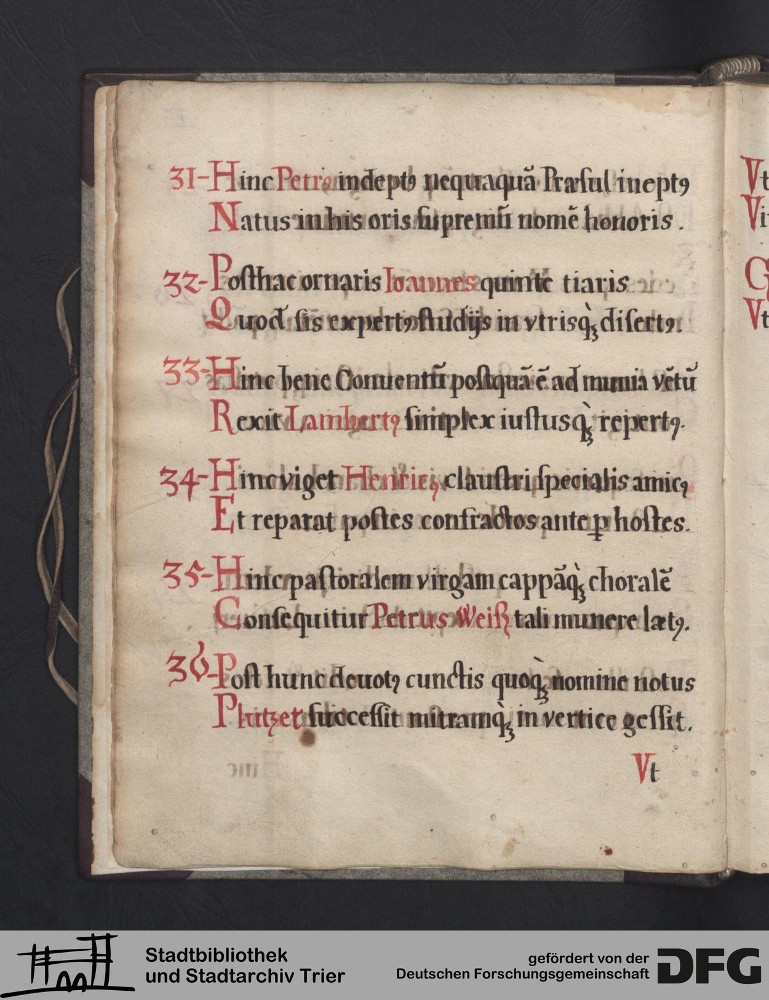 31-Hinc Petrꝰ indeptꝰ nequaquā Præsul ineptꝰ
Natus in his oris supremū nomē honoris.
32-Posthac ornaris Ioannes quinte tiaris
Quod sis expertꝰ studijs in vtrisq̀ꝫ disertꝰ.
33-Hinc bene Conuentū postquā ē ad munia vētū
Rexit Lambertꝰ simplex iustusq̀ꝫ repertꝰ.
34-Hinc viget Henricꝰ claustri specialis amicꝰ
Et reparat postes confractos ante ꝑ hostes.
35-Hinc pastoralem virgam cappāq̀ꝫ choralē
Consequitur Petrus Weiß tali munere lætꝰ.
36-Post hunc deuotꝰ cunctis quoq̀ꝫ nomine notus
Plutzet successit mitramq̀ꝫ in vertice gessit.
Vt
Vt
Vi
Vt
Stadtbibliothek
und Stadtarchiv Trier
gefördert von der
Deutschen Forschungsgemeinschaft
DFG